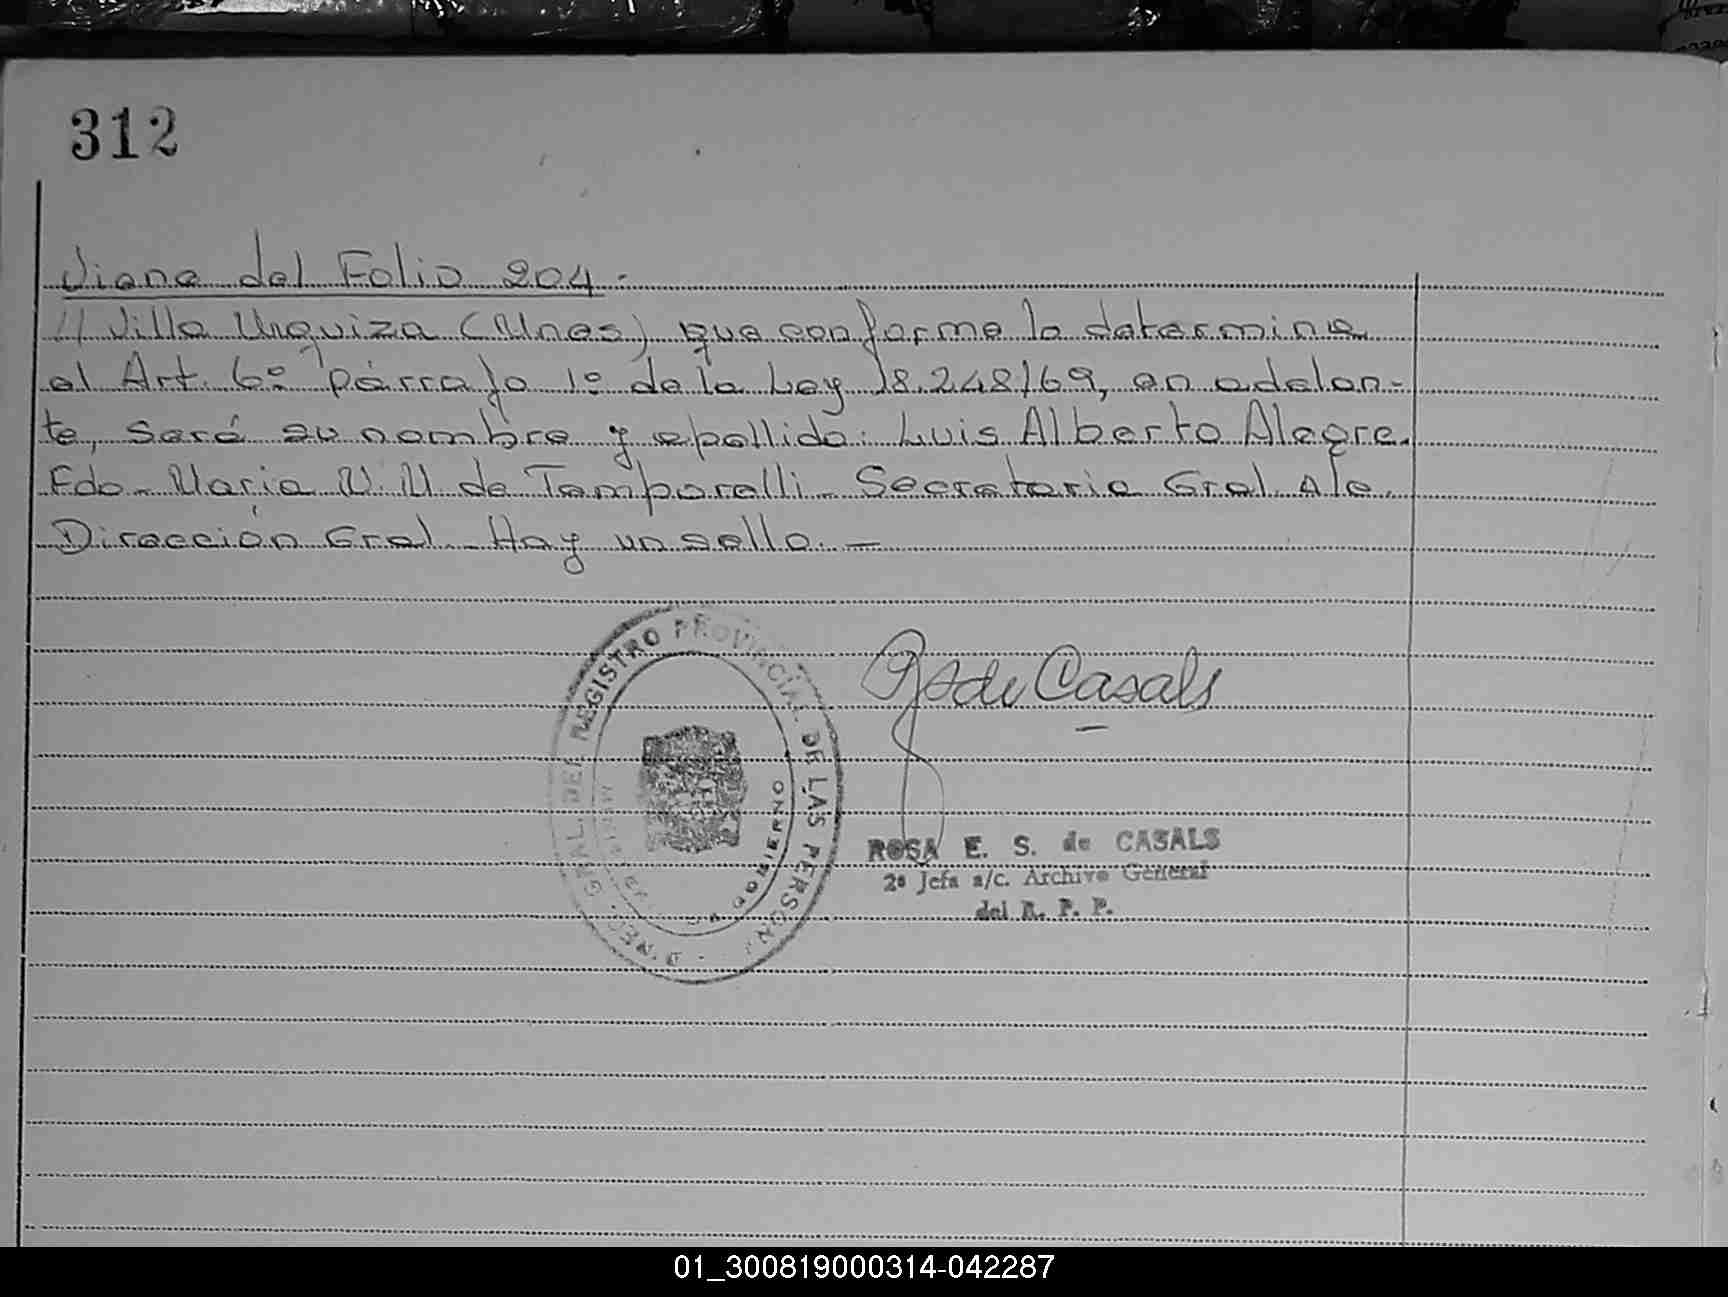 312
Viene del Folio 204.-
// Villa Urquiza (Mnes) que conforme lo determina
el Art. 6º párrafo 1º de la Ley 18.248/69, en adelan-
te, será su nombre y apellido: Luis Alberto Alegre.
Fdo. Maria V. M. de Tamporelli - Secretaria Gral. A/c.
Dirección Gral. - Hay un sello. -
REGISTRO PROVINCIAL DE LAS PERSON
GRAL. DEL
GOBIERNO
de Casals
ROSA E. S. de CASALS
2ª Jefa a/c. Archivo General
del R. P. P.
01_300819000314-042287